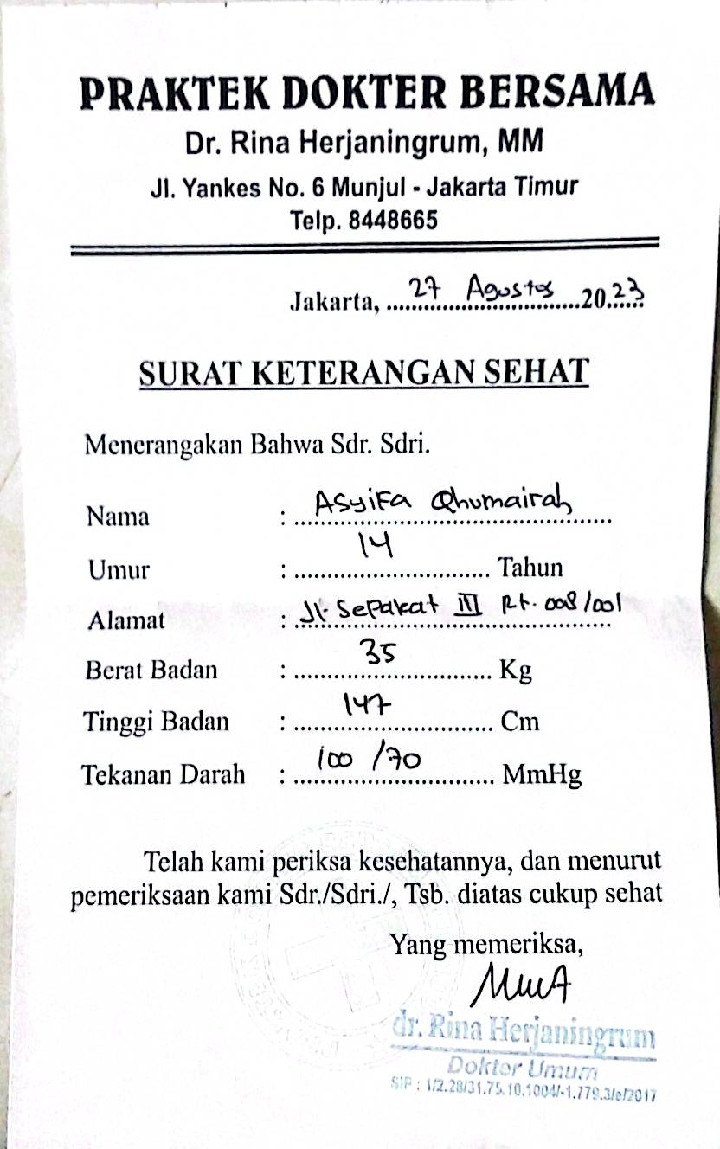 PRAKTEK DOKTER BERSAMA
Dr. Rina Herjaningrum, MM
Jl. Yankes No. 6 Munjul - Jakarta Timur
Telp. 8448665
Jakarta, 27 Agustos 2023
SURAT KETERANGAN SEHAT
Menerangakan Bahwa Sdr. Sdri.
Nama : Asyifa Qhumairah
Umur : 14 Tahun
Alamat : Jl. Sepakat III Rt. 008/001
Berat Badan : 35 Kg
Tinggi Badan : 147 Cm
Tekanan Darah : 100 /70 MmHg
Telah kami periksa kesehatannya, dan menurut
pemeriksaan kami Sdr./Sdri./, Tsb. diatas cukup sehat
Yang memeriksa,
dr. Rina Herjaningrum
Dokter Umum
SIP : 1/2.28/31.75.10.1004/-1.779.3/e/2017